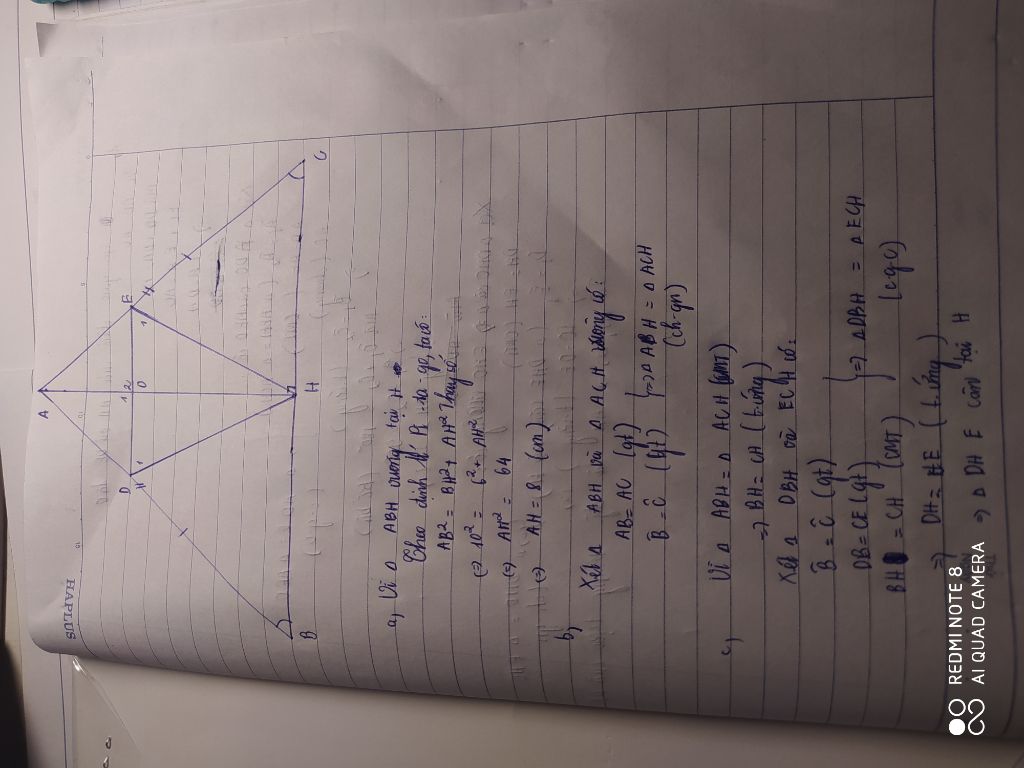 HAPLUS
A
D
E
1
2
1
1
O
B
H
C
a, Vì Δ ABH vuông tại H
Theo định lí Pi-ta-go, ta có:
AB² = BH² + AH²
(=) 10² = 6² + AH²
(=) AH² = 64
(=) AH = 8 (cm)
b, Xét Δ ABH và Δ ACH có:
AB = AC (gt)
B̂ = Ĉ (gt)
} => Δ ABH = Δ ACH
(ch-gn)
c, Vì Δ ABH = Δ ACH (cmt)
=> BH = CH (t.ứng)
Xét Δ DBH và ECH có:
B̂ = Ĉ (gt)
DB = CE (gt)
BH = CH (cmt)
} => Δ DBH = Δ ECH
(c.g.c)
=> DH = HE (t.ứng)
=> Δ DHE cân tại H
REDMI NOTE 8
AI QUAD CAMERA